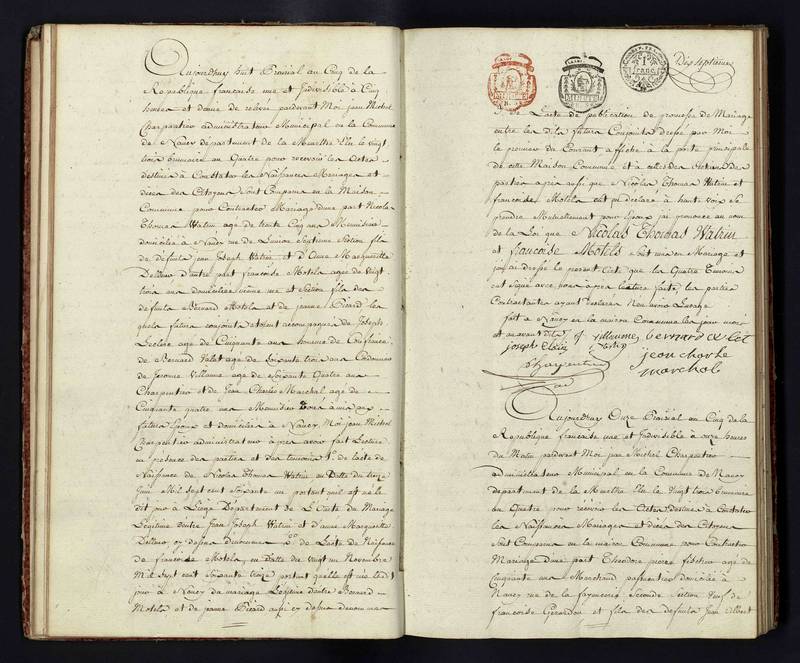 Aujourdhuy huit Prairial an Cinq de la
Republique francaise une et Indivisible a Cinq
heures et demie de relevée pardevant Moi jean Michel
Charpentier administrateur Municipal en la Commune
de Nancy departement de la Meurthe Elu le vingt
trois brumaire an Quatre pour recevoir les Actes
destinés à Constater les Naissances Mariages et
deces des Citoyens Sont Comparus en la Maison
Commune pour Contracter Mariage dune part Nicolas
Thomas Watrin age de trente Cinq ans Menuisier
domicilié a Nancy rue de Septieme Section fils
de defunts jean Joseph Watrin et d'Anne Marguerite
dautre part francoise Motels agée de Vingt
trois ans domiciliée même rue et Section fille des
defunts Bernard Motels et de jeanne Picard les
quels futurs conjoints etoient accompagnés de Joseph
age de Cinquante ans homme de Confiance
de Bernard Valet age de Soixante trois ans Cordonnier
de Jerome Villaume age de Soixante Quatre ans
Charpentier et de Jean Charles Marchal age de
Cinquante quatre ans Menuisier tous amis aux
futurs Epoux et domiciliés a Nancy Moi jean Michel
Charpentier administrateur après avoir fait Lecture
en presence des parties et des temoins 1° de lacte de
Naissance de Nicolas Thomas Watrin en Datte du treize
Juin Mil sept cent Soixante un portant quil est né le
dit jour a Liège Departement de L'Ourte du Mariage
Legitime dentre Jean Joseph Watrin et d'anne Marguerite
cy dessus denommés 2° de Lacte de Naissance
de francoise Motels, en Datte du vingt un Novembre
Mil Sept cent Soixante treize portant quelle est née ledit
jour a Nancy du mariage Legitime dentre Bernard
Motels et de jeanne Picard aussi cy dessus denommés
Dix septieme
3° de Lacte de publication de promesse de Mariage
entre les dits futurs Conjoints dressé par Moi
le premier du Courant affiché a la porte principale
de cette Maison Commune et a celles des Sections des
parties après aussi que Nicolas Thomas Watrin et
francoise Motels ont declaré a haute voix se
prendre Mutuellement pour Epoux jai prononcé au nom
de la Loi que Nicolas Thomas Watrin
et francoise Motels sont unis en Mariage et
jai dressé le present acte que les Quatre Temoins
ont signé avec moi apres lecture faite les parties
Contractantes ayant declaré N'en avoir L'usage
fait a Nancy en la maison Commune les jour mois
et an avant dits
j villaume bernard valet
joseph
jean charle
marchal
Charpentier
Aujourdhuy Onze Prairial an Cinq de la
Republique francaise une et Indivisible a onze heures
du Matin pardevant Moi jean Michel Charpentier
administrateur Municipal en la Commune de Nancy
departement de la Meurthe Elu le Vingt trois brumaire
an Quatre pour recevoir les Actes destinés a Constater
les Naissances Mariages et deces des Citoyens
Sont Comparus en la maison Commune pour Contracter
Mariage dune part Theodore pierre age de
Cinquante ans Marchand passementier domicilié a
Nancy rue de la fayencerie Seconde Section Veuf de
francoise Gerardon et fils des defunts Jean